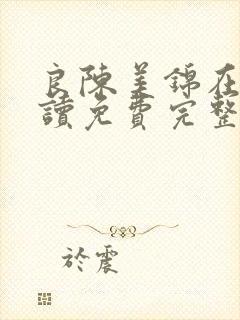 良陳美錦在
讀免費完整
於震